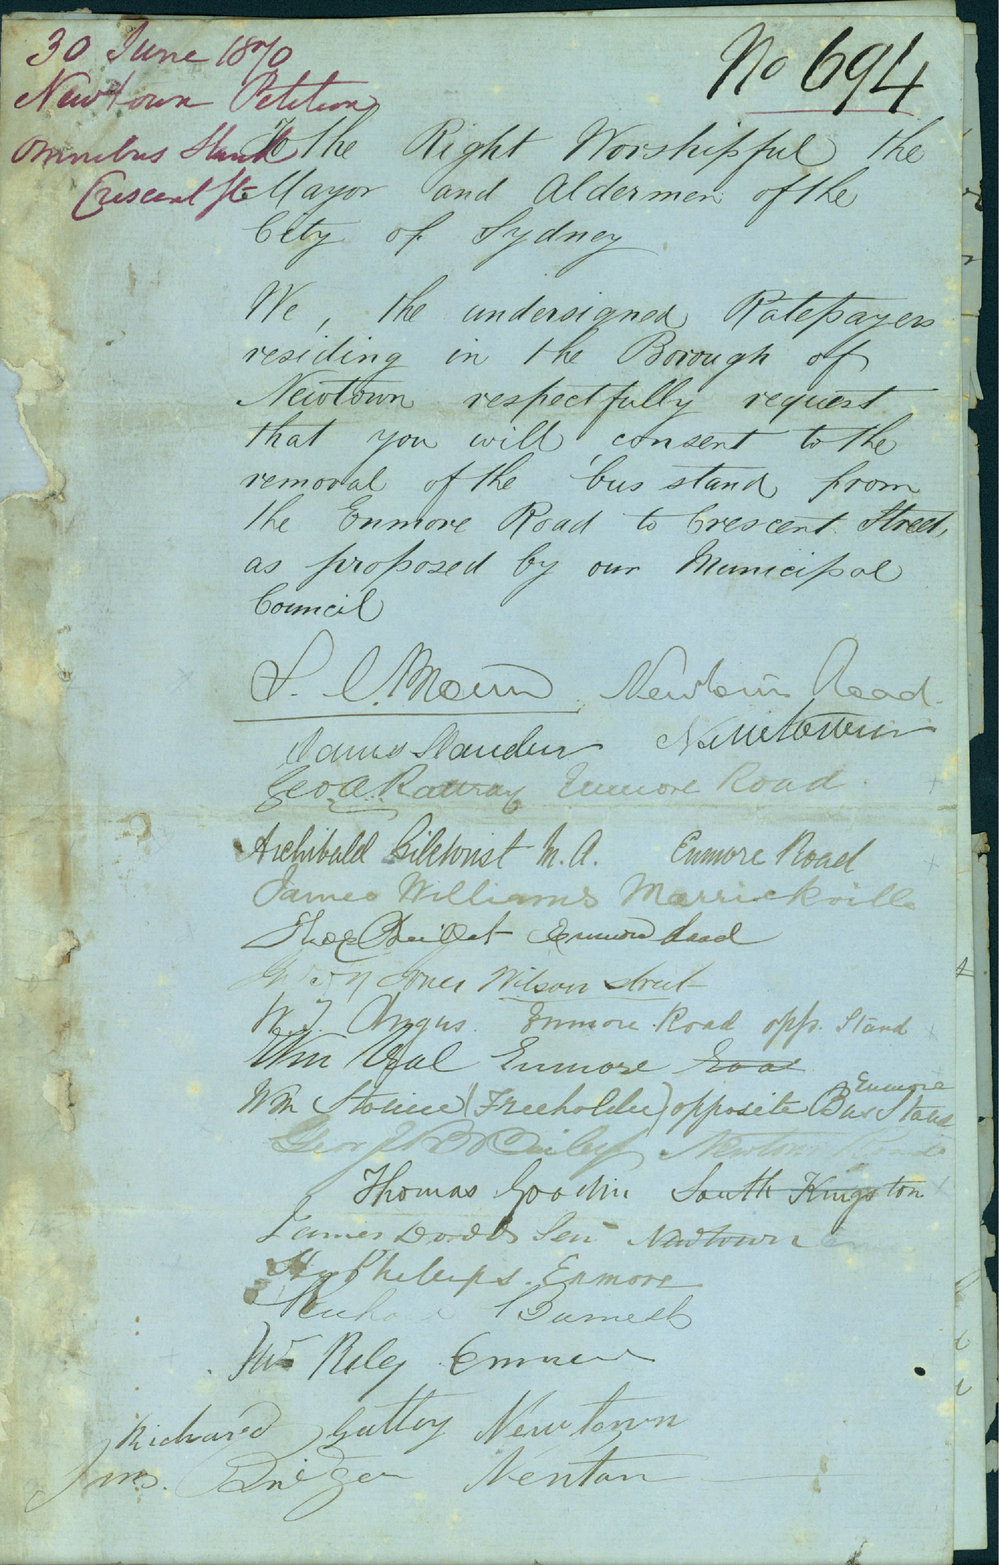 30 June 1870
Newtown Petition
Omnibus Stand
Crescent St
No 694
To the Right Worshipful the
Mayor and Aldermen of the
City of Sydney
We, the undersigned Ratepayers
residing in the Borough of
Newtown respectfully request
that you will consent to the
removal of the 'bus stand from
the Enmore Road to Crescent Street,
as proposed by our Municipal
Council
Newtown Road
James Newtown
Geo A Enmore Road
Archibald Gilchrist M.A. Enmore Road
James Williams Marrickville
Enmore Road
Jones Wilson street
W. J. Angus Enmore Road opp. Stand
Wm Veal Enmore Road
Wm (Freeholder) opposite Enmore Bus Stand
Newtown Road
Thomas Goodin South Kingston
James Dodds Sen Newtown
Hy Phillips. Enmore
Richard
Riley Enmore
Richard Newtown
Newtown